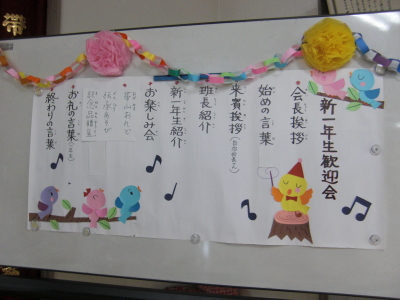 新一年生歓迎会
会長挨拶
始めの言葉
来賓挨拶
班長紹介
新一年生紹介
お楽しみ会
記念品贈呈
お礼の言葉
終わりの言葉